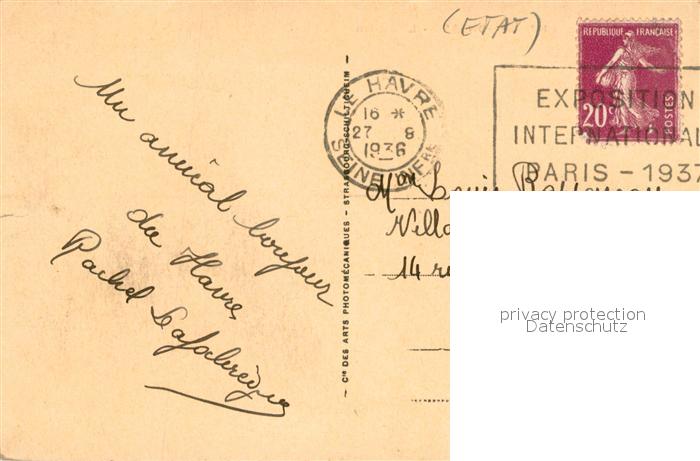 (ETAT)
REPUBLIQUE FRANÇAISE
20c
POSTES
LE HAVRE
16 *
27 8
1936
SEINE INFRE
EXPOSITION
INTERNATIONAL
PARIS - 1937
Un amical bonjour
du Havre
Rachel
Cie DES ARTS PHOTOMÉCANIQUES - STRASBOURG-SCHILTIGHEIM
Mon Louis
Villa
14 ru
privacy protection
Datenschutz